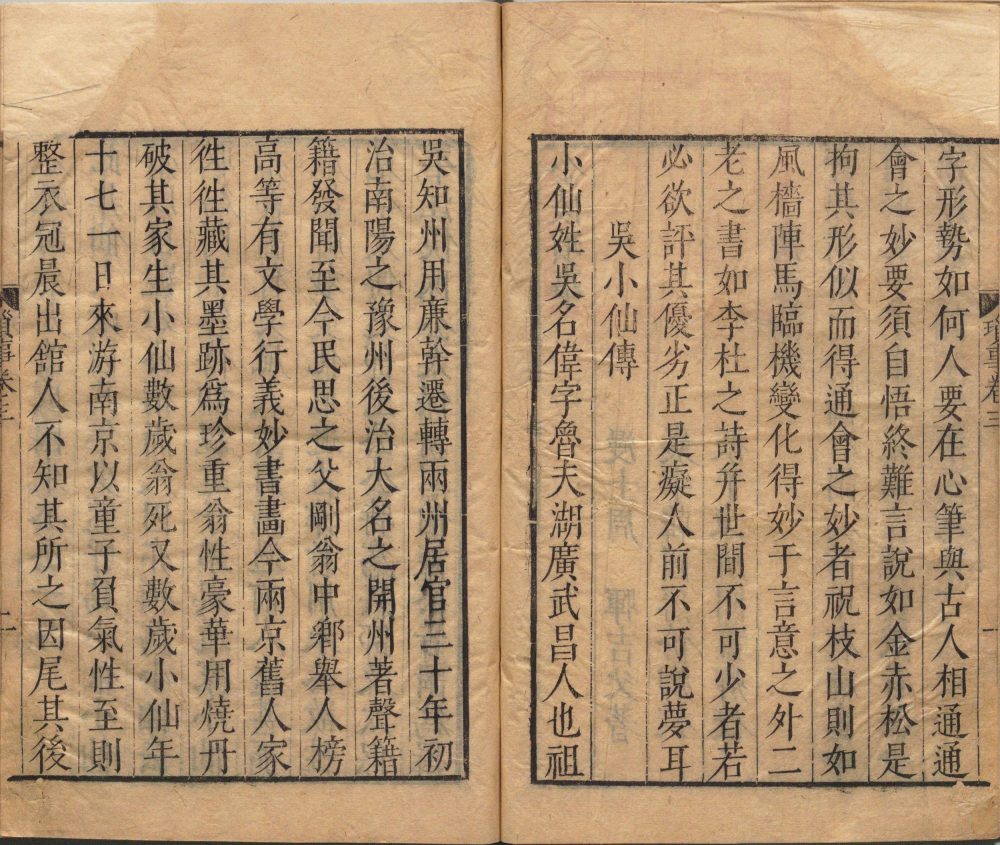 字形勢如何人要在心筆與古人相通通
會之妙要須自悟終難言說如金赤松是
拘其形似而得通會之妙者祝枝山則如
風檣陣馬臨機變化得妙于言意之外二
老之書如李杜之詩幷世間不可少者若
必欲評其優劣正是癡人前不可說夢耳
吳小仙傳
小仙姓吳名偉字魯夫湖廣武昌人也祖
吳知州用廉幹遷轉兩州居官三十年初
治南陽之豫州後治大名之開州著聲籍
籍發聞至今民思之父剛翁中鄉舉人榜
高等有文學行義妙書畫今兩京舊人家
徃徃藏其墨跡爲珍重翁性豪華用燒丹
破其家生小仙數歲翁死又數歲小仙年
十七一日來游南京以童子負氣性至則
整衣冠晨出舘人不知其所之因尾其後
卷三